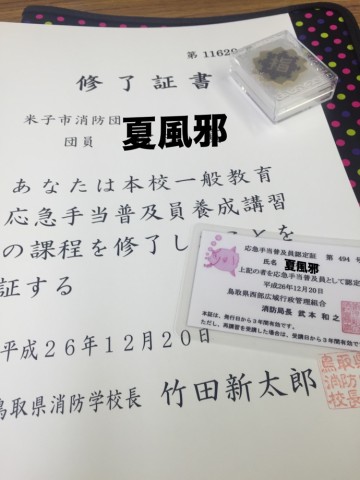 第11629
修了証書
米子市消防団
団員 夏風邪
あなたは本校一般教育
応急手当普及員養成講習
の課程を修了し ことを
証する
平成26年12月20日
鳥取県消防学校長 竹田新太郎
応急手当普及員認定証 第 494 号
氏名 夏風邪
上記の者を応急手当普及員として認定
平成26年12月20日
鳥取県西部広域行政管理組合
消防局長 武本和之
本証は、発行日から3年間有効です。
ただし、再講習を受講した場合は、受講日から3年間有効です。
鳥取県
消防
校長